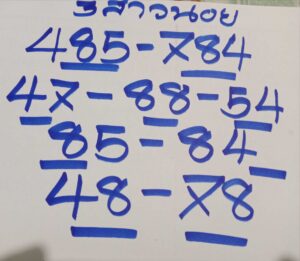 3สาวนอย
485-784
47-88-54
85-84
48-78